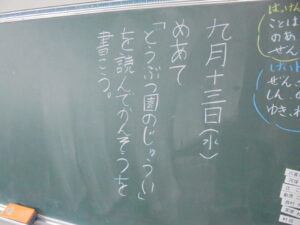 九月十三日(水)
めあて
「どうぶつ園のじゅうい」
を読んでかんそうを
書こう。
ことは
のあ
せん
ぜん
しん
ゆき、